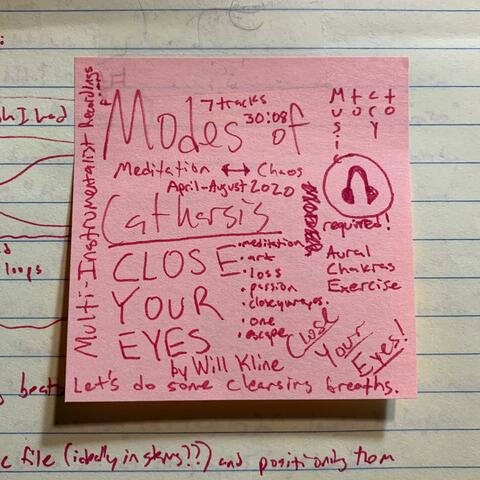 Multi-Instrumentalist Recordings
7 tracks
30:08
Modes of
Meditation ↔ Chaos
April-August 2020
Catharsis
CLOSE
YOUR
EYES
• meditation
• art
• loss
• passion
• one
• escape
by Will Kline
required!
Aural
Chakras
Exercise
Close
Your
Eyes!
Let's do some cleansing breaths.
I had
loops
file (ideally in stems??) and positioning them